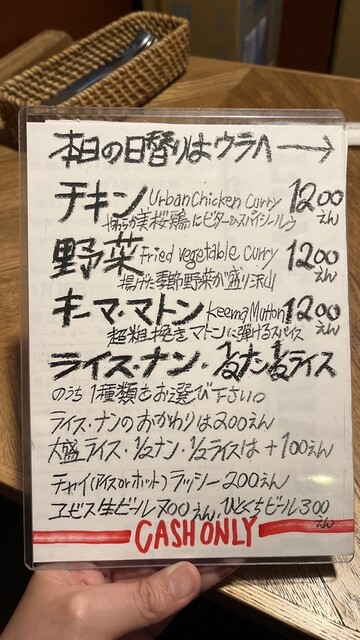 本日の日替りはウラへ→
チキン Urban Chicken Curry 1200えん
やわらか美桜鶏にビターなスパイシールウ
野菜 Fried vegetable curry 1200えん
揚げた季節野菜が盛り沢山
キーマ・マトン Keema Mutton 1200えん
超粗挽きマトンに弾けるスパイス
ライス・ナン・½ナン½ライス
のうち1種類をお選び下さい。
ライス・ナンのおかわりは200えん
大盛ライス・½ナン・½ライスは+100えん
チャイ(アイスorホット)ラッシー200えん
ヱビス生ビール700えん、ひとくちビール300えん
CASH ONLY